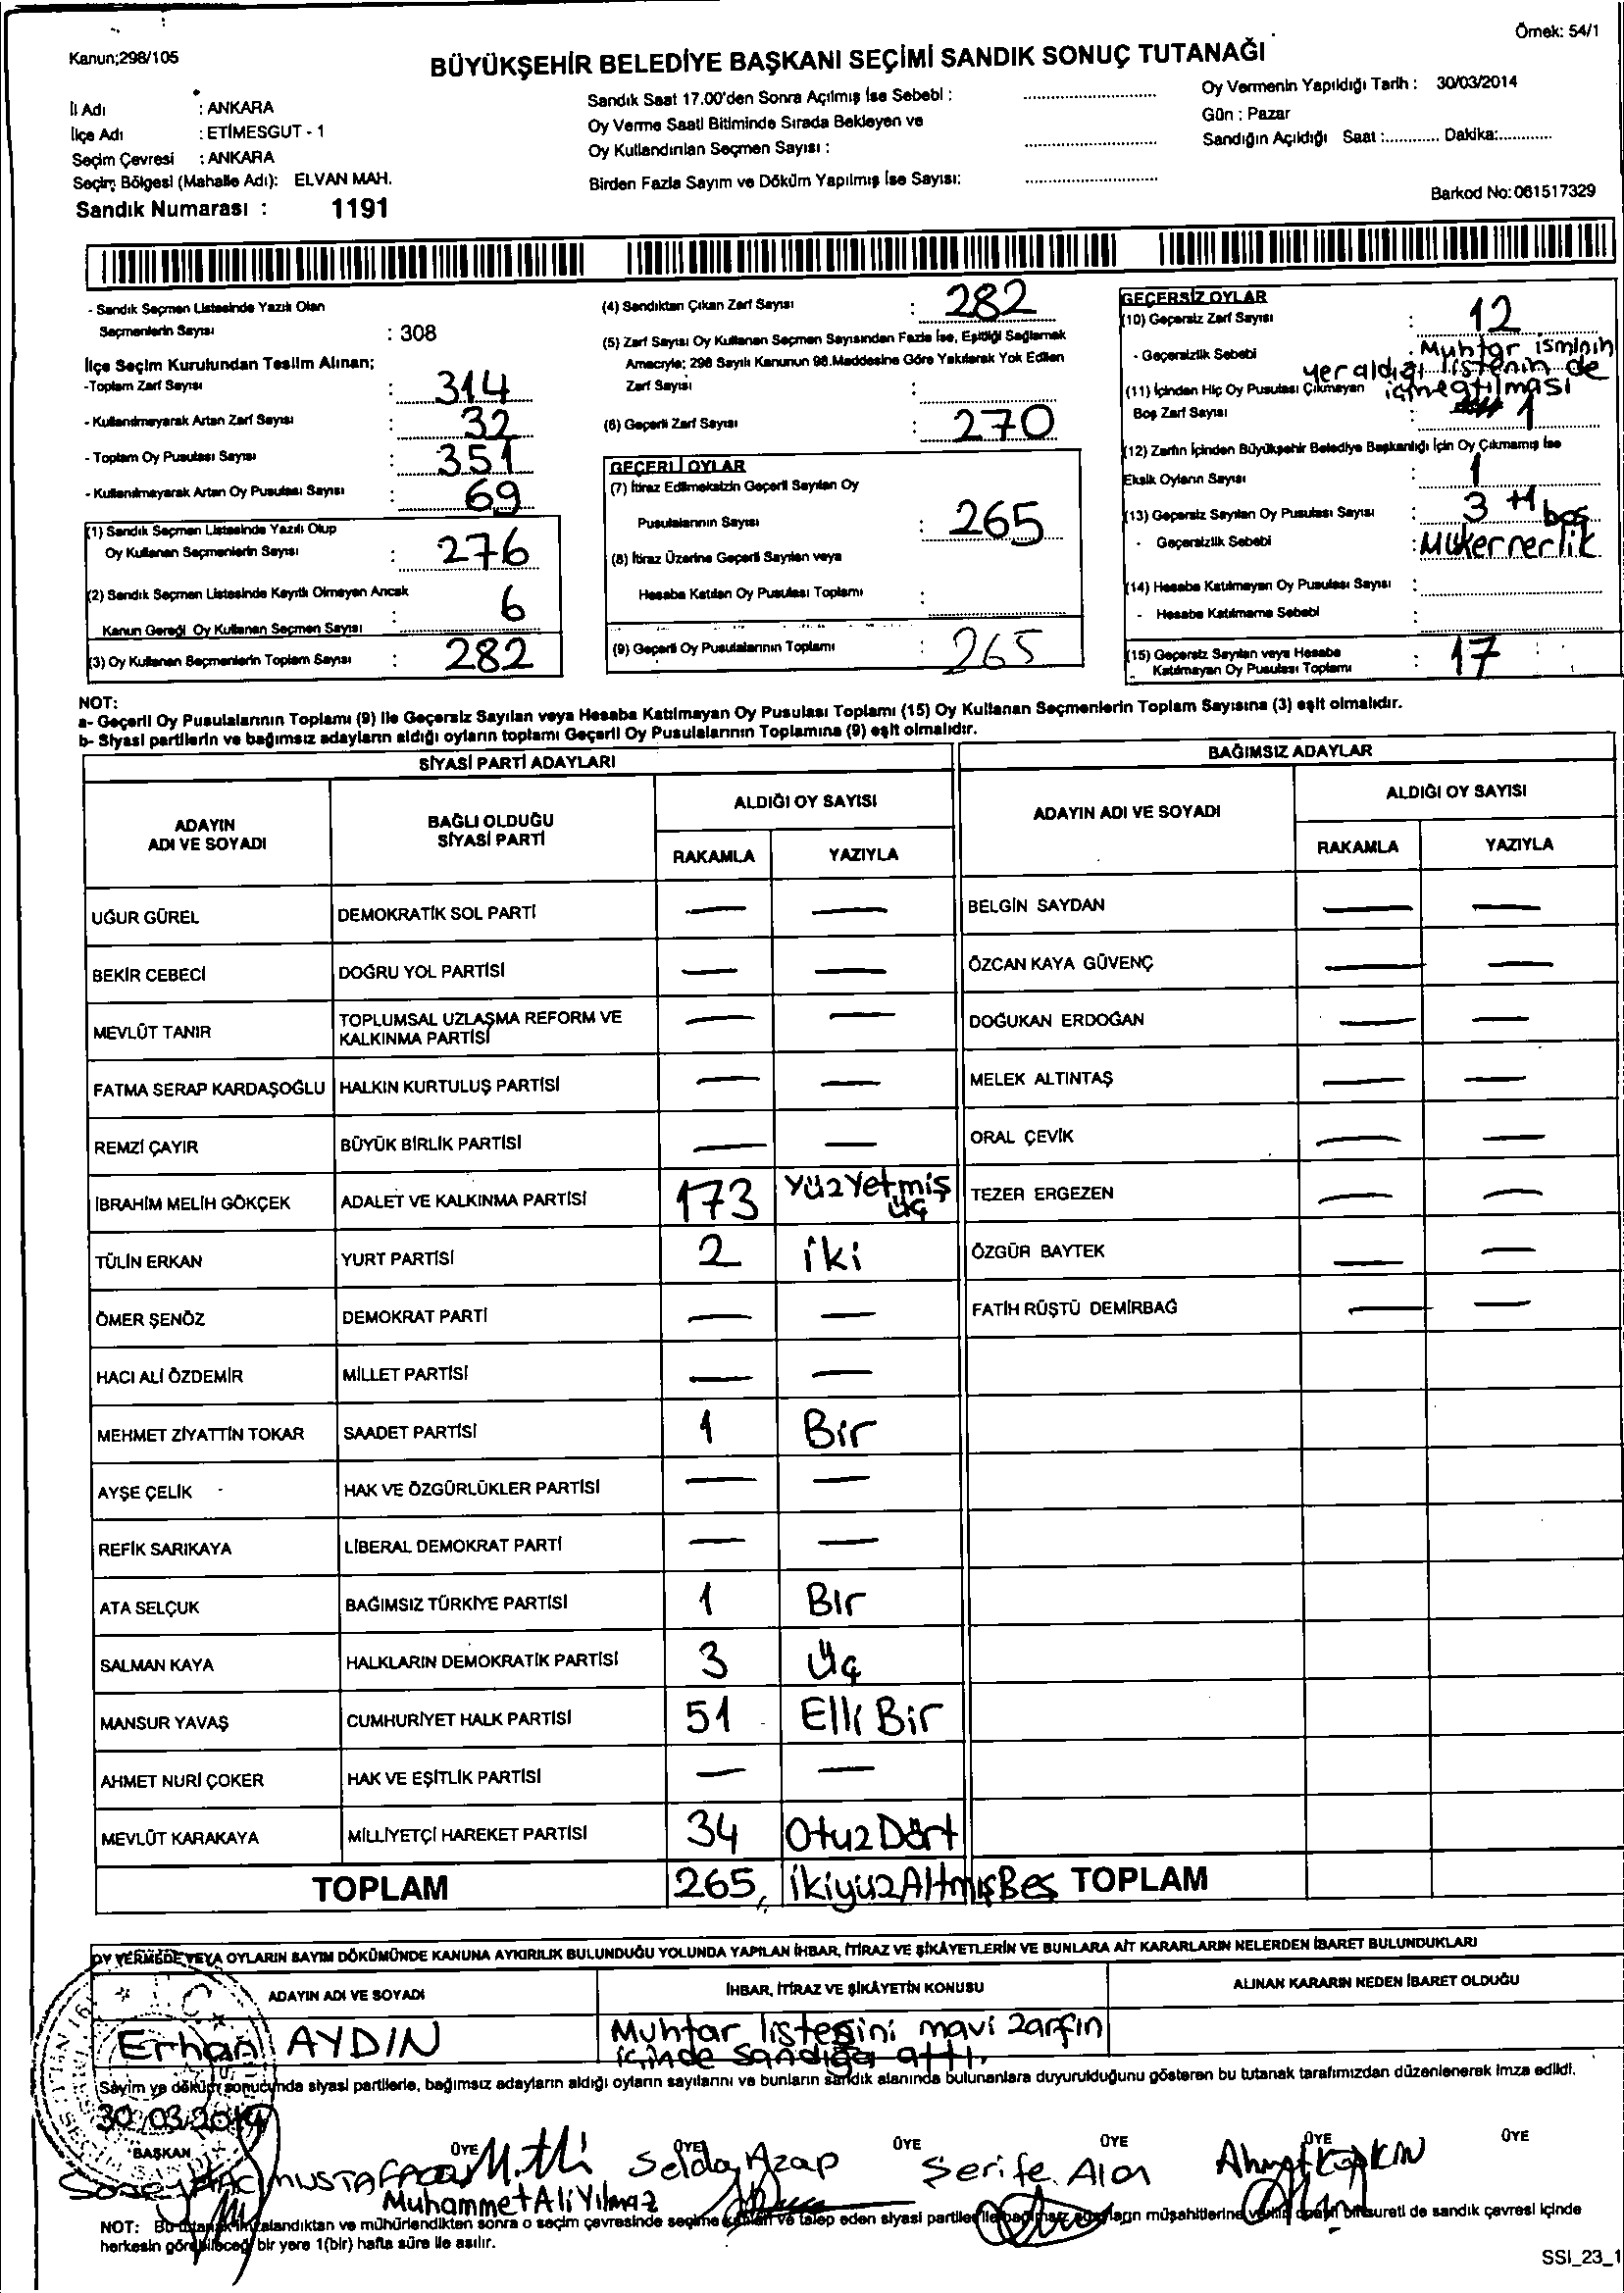 Örnek: 54/1
Kanun;298/105
BÜYÜKŞEHİR BELEDİYE BAŞKANI SEÇİMİ SANDIK SONUÇ TUTANAĞI
İl Adı : ANKARA
İlçe Adı : ETİMESGUT - 1
Seçim Çevresi : ANKARA
Seçim Bölgesi (Mahalle Adı): ELVAN MAH.
Sandık Numarası : 1191
Sandık Saat 17.00'den Sonra Açılmış İse Sebebi :
Oy Verme Saati Bitiminde Sırada Bekleyen ve
Oy Kullandırılan Seçmen Sayısı :
Birden Fazla Sayım ve Döküm Yapılmış İse Sayısı:
Oy Vermenin Yapıldığı Tarih : 30/03/2014
Gün : Pazar
Sandığın Açıldığı Saat :............ Dakika:............
Barkod No:061517329
- Sandık Seçmen Listesinde Yazılı Olan
Seçmenlerin Sayısı : 308
İlçe Seçim Kurulundan Teslim Alınan;
-Toplam Zarf Sayısı : 314
- Kullanılmayarak Artan Zarf Sayısı : 32
- Toplam Oy Pusulası Sayısı : 351
- Kullanılmayarak Artan Oy Pusulası Sayısı : 69
(1) Sandık Seçmen Listesinde Yazılı Olup
Oy Kullanan Seçmenlerin Sayısı : 276
(2) Sandık Seçmen Listesinde Kayıtlı Olmayan Ancak
Kanun Gereği Oy Kullanan Seçmen Sayısı : 6
(3) Oy Kullanan Seçmenlerin Toplam Sayısı : 282
(4) Sandıktan Çıkan Zarf Sayısı : 282
(5) Zarf Sayısı Oy Kullanan Seçmen Sayısından Fazla İse, Eşitliği Sağlamak
Amacıyla; 298 Sayılı Kanunun 98.Maddesine Göre Yakılarak Yok Edilen
Zarf Sayısı :
(6) Geçerli Zarf Sayısı : 270
GEÇERLİ OYLAR
(7) İtiraz Edilmeksizin Geçerli Sayılan Oy
Pusulalarının Sayısı : 265
(8) İtiraz Üzerine Geçerli Sayılan veya
Hesaba Katılan Oy Pusulası Toplamı :
(9) Geçerli Oy Pusulalarının Toplamı : 265
GEÇERSİZ OYLAR
(10) Geçersiz Zarf Sayısı : 12
- Geçersizlik Sebebi : Muhtar isminin
yer aldığı listenin de
içine atılması
(11) İçinden Hiç Oy Pusulası Çıkmayan
Boş Zarf Sayısı : 1
(12) Zarfın İçinden Büyükşehir Belediye Başkanlığı İçin Oy Çıkmamış İse
Eksik Oyların Sayısı : 1
(13) Geçersiz Sayılan Oy Pusulası Sayısı : 3 +1 boş
- Geçersizlik Sebebi : Mükernerlik
(14) Hesaba Katılmayan Oy Pusulası Sayısı :
- Hesaba Katılmama Sebebi :
(15) Geçersiz Sayılan veya Hesaba
Katılmayan Oy Pusulası Toplamı : 17
NOT:
a- Geçerli Oy Pusulalarının Toplamı (9) ile Geçersiz Sayılan veya Hesaba Katılmayan Oy Pusulası Toplamı (15) Oy Kullanan Seçmenlerin Toplam Sayısına (3) eşit olmalıdır.
b- Siyasi partilerin ve bağımsız adayların aldığı oyların toplamı Geçerli Oy Pusulalarının Toplamına (9) eşit olmalıdır.
SİYASİ PARTİ ADAYLARI
BAĞIMSIZ ADAYLAR
ADAYIN
ADI VE SOYADI
BAĞLI OLDUĞU
SİYASİ PARTİ
ALDIĞI OY SAYISI
RAKAMLA YAZIYLA
ADAYIN ADI VE SOYADI
ALDIĞI OY SAYISI
RAKAMLA YAZIYLA
UĞUR GÜREL DEMOKRATİK SOL PARTİ — — BELGİN SAYDAN — —
BEKİR CEBECİ DOĞRU YOL PARTİSİ — — ÖZCAN KAYA GÜVENÇ — —
MEVLÜT TANIR TOPLUMSAL UZLAŞMA REFORM VE
KALKINMA PARTİSİ — — DOĞUKAN ERDOĞAN — —
FATMA SERAP KARDAŞOĞLU HALKIN KURTULUŞ PARTİSİ — — MELEK ALTINTAŞ — —
REMZİ ÇAYIR BÜYÜK BİRLİK PARTİSİ — — ORAL ÇEVİK — —
İBRAHİM MELİH GÖKÇEK ADALET VE KALKINMA PARTİSİ 173 Yüz Yetmiş Üç TEZER ERGEZEN — —
TÜLİN ERKAN YURT PARTİSİ 2 iki ÖZGÜR BAYTEK — —
ÖMER ŞENÖZ DEMOKRAT PARTİ — — FATİH RÜŞTÜ DEMİRBAĞ — —
HACI ALİ ÖZDEMİR MİLLET PARTİSİ — —
MEHMET ZİYATTİN TOKAR SAADET PARTİSİ 1 Bir
AYŞE ÇELİK HAK VE ÖZGÜRLÜKLER PARTİSİ — —
REFİK SARIKAYA LİBERAL DEMOKRAT PARTİ — —
ATA SELÇUK BAĞIMSIZ TÜRKİYE PARTİSİ 1 Bir
SALMAN KAYA HALKLARIN DEMOKRATİK PARTİSİ 3 Üç
MANSUR YAVAŞ CUMHURİYET HALK PARTİSİ 51 Elli Bir
AHMET NURİ ÇOKER HAK VE EŞİTLİK PARTİSİ — —
MEVLÜT KARAKAYA MİLLİYETÇİ HAREKET PARTİSİ 34 Otuz Dört
TOPLAM 265 İkiyüz Altmış Beş TOPLAM
OY VERMEDE VEYA OYLARIN SAYIM DÖKÜMÜNDE KANUNA AYKIRILIK BULUNDUĞU YOLUNDA YAPILAN İHBAR, İTİRAZ VE ŞİKÂYETLERİN VE BUNLARA AİT KARARLARIN NELERDEN İBARET BULUNDUKLARI
ADAYIN ADI VE SOYADI İHBAR, İTİRAZ VE ŞİKÂYETİN KONUSU ALINAN KARARIN NEDEN İBARET OLDUĞU
Erhan AYDIN Muhtar listesini mavi zarfın
içinde sandığa attı.
Sayım ve döküm sonucunda siyasi partilerle, bağımsız adayların aldığı oyların sayılarını ve bunların sandık alanında bulunanlara duyurulduğunu gösteren bu tutanak tarafımızdan düzenlenerek imza edildi.
30.03.2014
BAŞKAN ÜYE ÜYE ÜYE ÜYE ÜYE ÜYE
Selda Azap Şerife Alan
Muhammet Ali Yılmaz
NOT: Bu tutanak imzalandıktan ve mühürlendikten sonra o seçim çevresinde seçime katılan ve talep eden siyasi partiler ile bağımsız adayların müşahitlerine verilir onaylı bir sureti de sandık çevresi içinde
herkesin görebileceği bir yere 1(bir) hafta süre ile asılır.
SSI_23_1